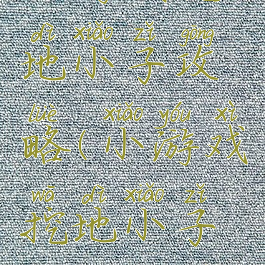 dì xiǎo zǐ gōng
地小子攻
lüè xiǎo yóu xì
略(小游戏
wā dì xiǎo zǐ
挖地小子